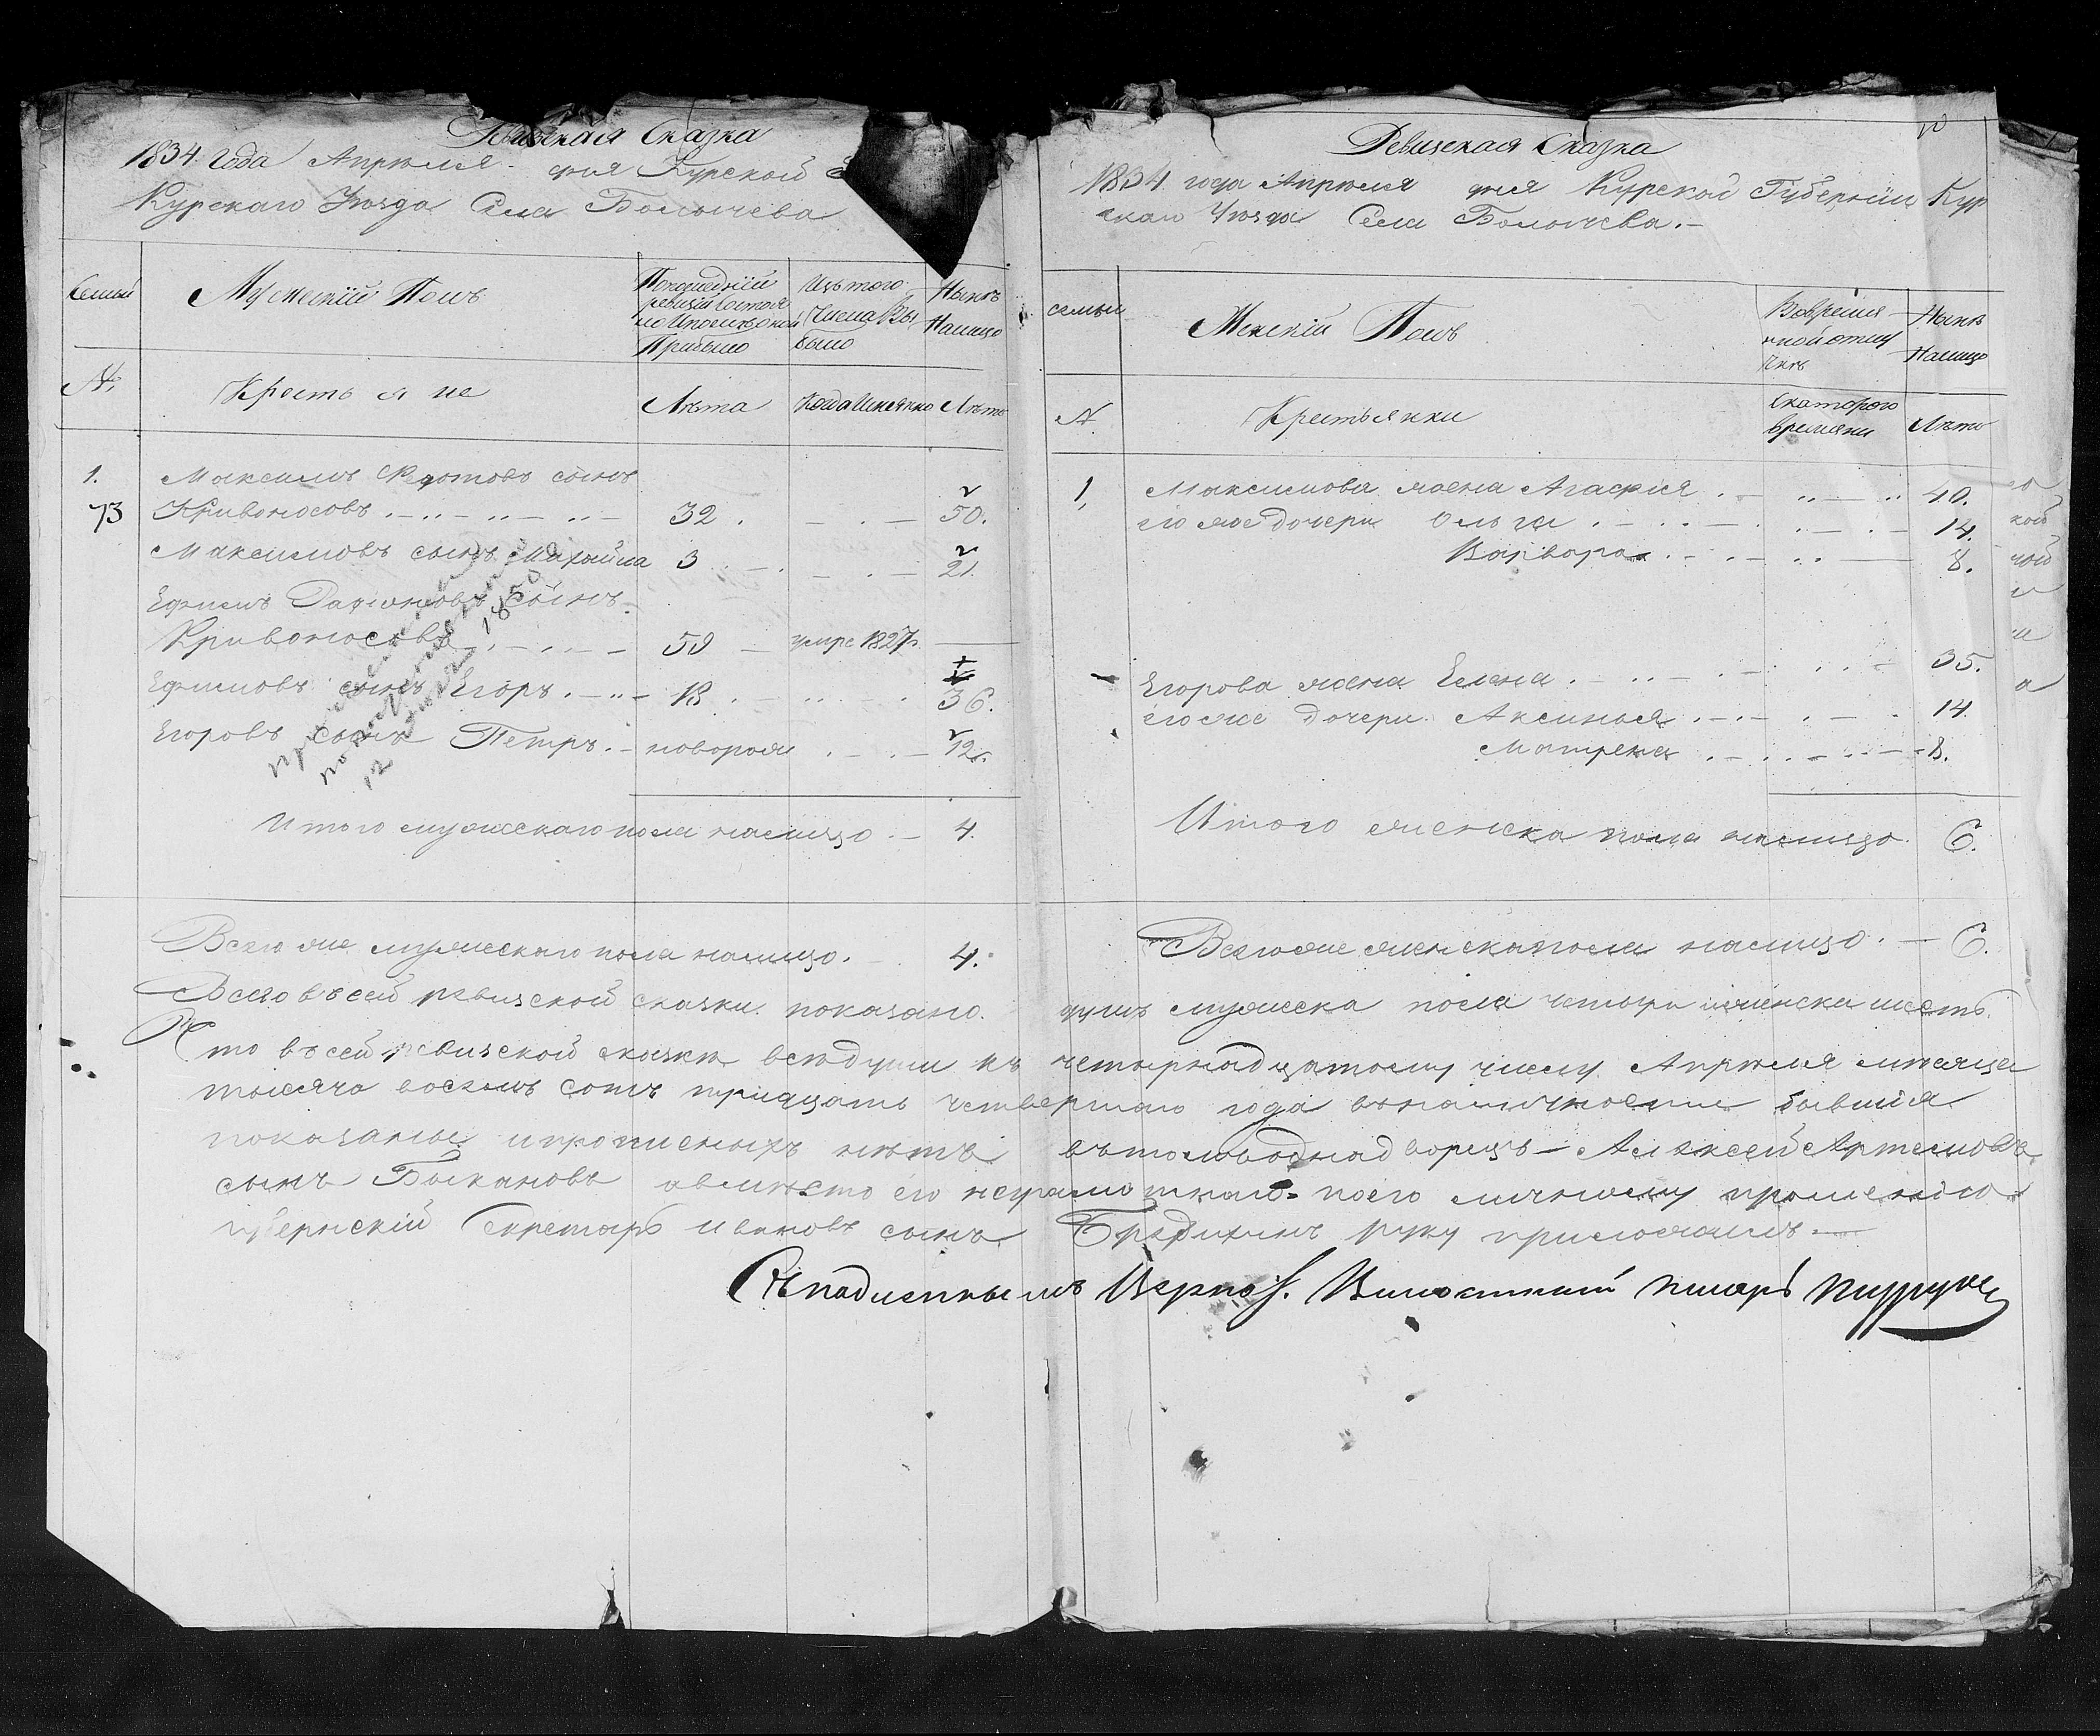 Ревизская Сказка
1834. года Апреля - дня Курской
Курскаго Уезда Села Болычева
Семьи
Мужеский Полъ
По последней ревизии состояло и после оной Прибыло
Изъ того Числа Выбыло
Ныне Налицо
№.
Крестьяне
Лета
Когда Именно
Лета
1.
Максимъ сынъ
73 Кривоносовъ 32. 50.
Максимовъ сынъ Михайла 3 21.
Ефимъ сынъ
Кривоносовъ 58 умре 1827
Ефимовъ сынъ Егоръ 18 36.
Егоровъ сынъ Петръ новорож 12.
12 1850
Итого мужескаго пола налицо 4.
Всего же мужескаго пола налицо. 4.
10
Ревизская Сказка
1834 года Апреля дня Курской Губернии Кур
скаго Уезда Села Болычева.
семьи
Женский Полъ
Ныне Налицо
№
Крестьянки
Скоторого времяни
Лета
1, Максимова жена Агафия 40.
его же дочери Ольга 14.
Варвара 8.
Егорова жена Елена 35.
его же дочери Аксинья 14.
Матрена 8.
Итого женска пола налицо. 6.
Всегоже женска пола налицо. 6.
Всего въ сей ревизской сказки показано. душъ мужеска пола четыре женска шесть
Что въ сей ревизской сказке все души къ четырнадцатому числу Апреля месяца
тысяча восемь сотъ тридцать четвертаго года въ наличности бывшия
показаны и прописныхъ нетъ въ томъ однадворецъ - Алексей Артемовъ
сынъ Быкановъ авместо его неграмотнаго по его личному прошению
губернский Секретарь Ивановъ сынъ руку приложилъ
Съ подленнымъ Верно. писарь